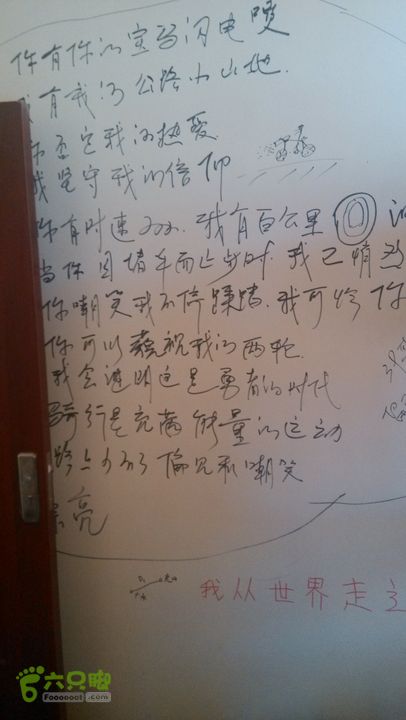 你有你的宝马闪电
我有我的公路小山地.
你否定我的热爱
我坚守我的信仰
你有时速200. 我有百公里
当你因堵车而止步时. 我已悄
你嘲笑我不停蹂踏. 我可怜你
你可以藐视我的两轮.
我会证明这是勇者的时代
骑行是充满能量的运动
路上少不了 偷兄和嘲笑
亮
我从世界走
六只脚
Foooooot.com